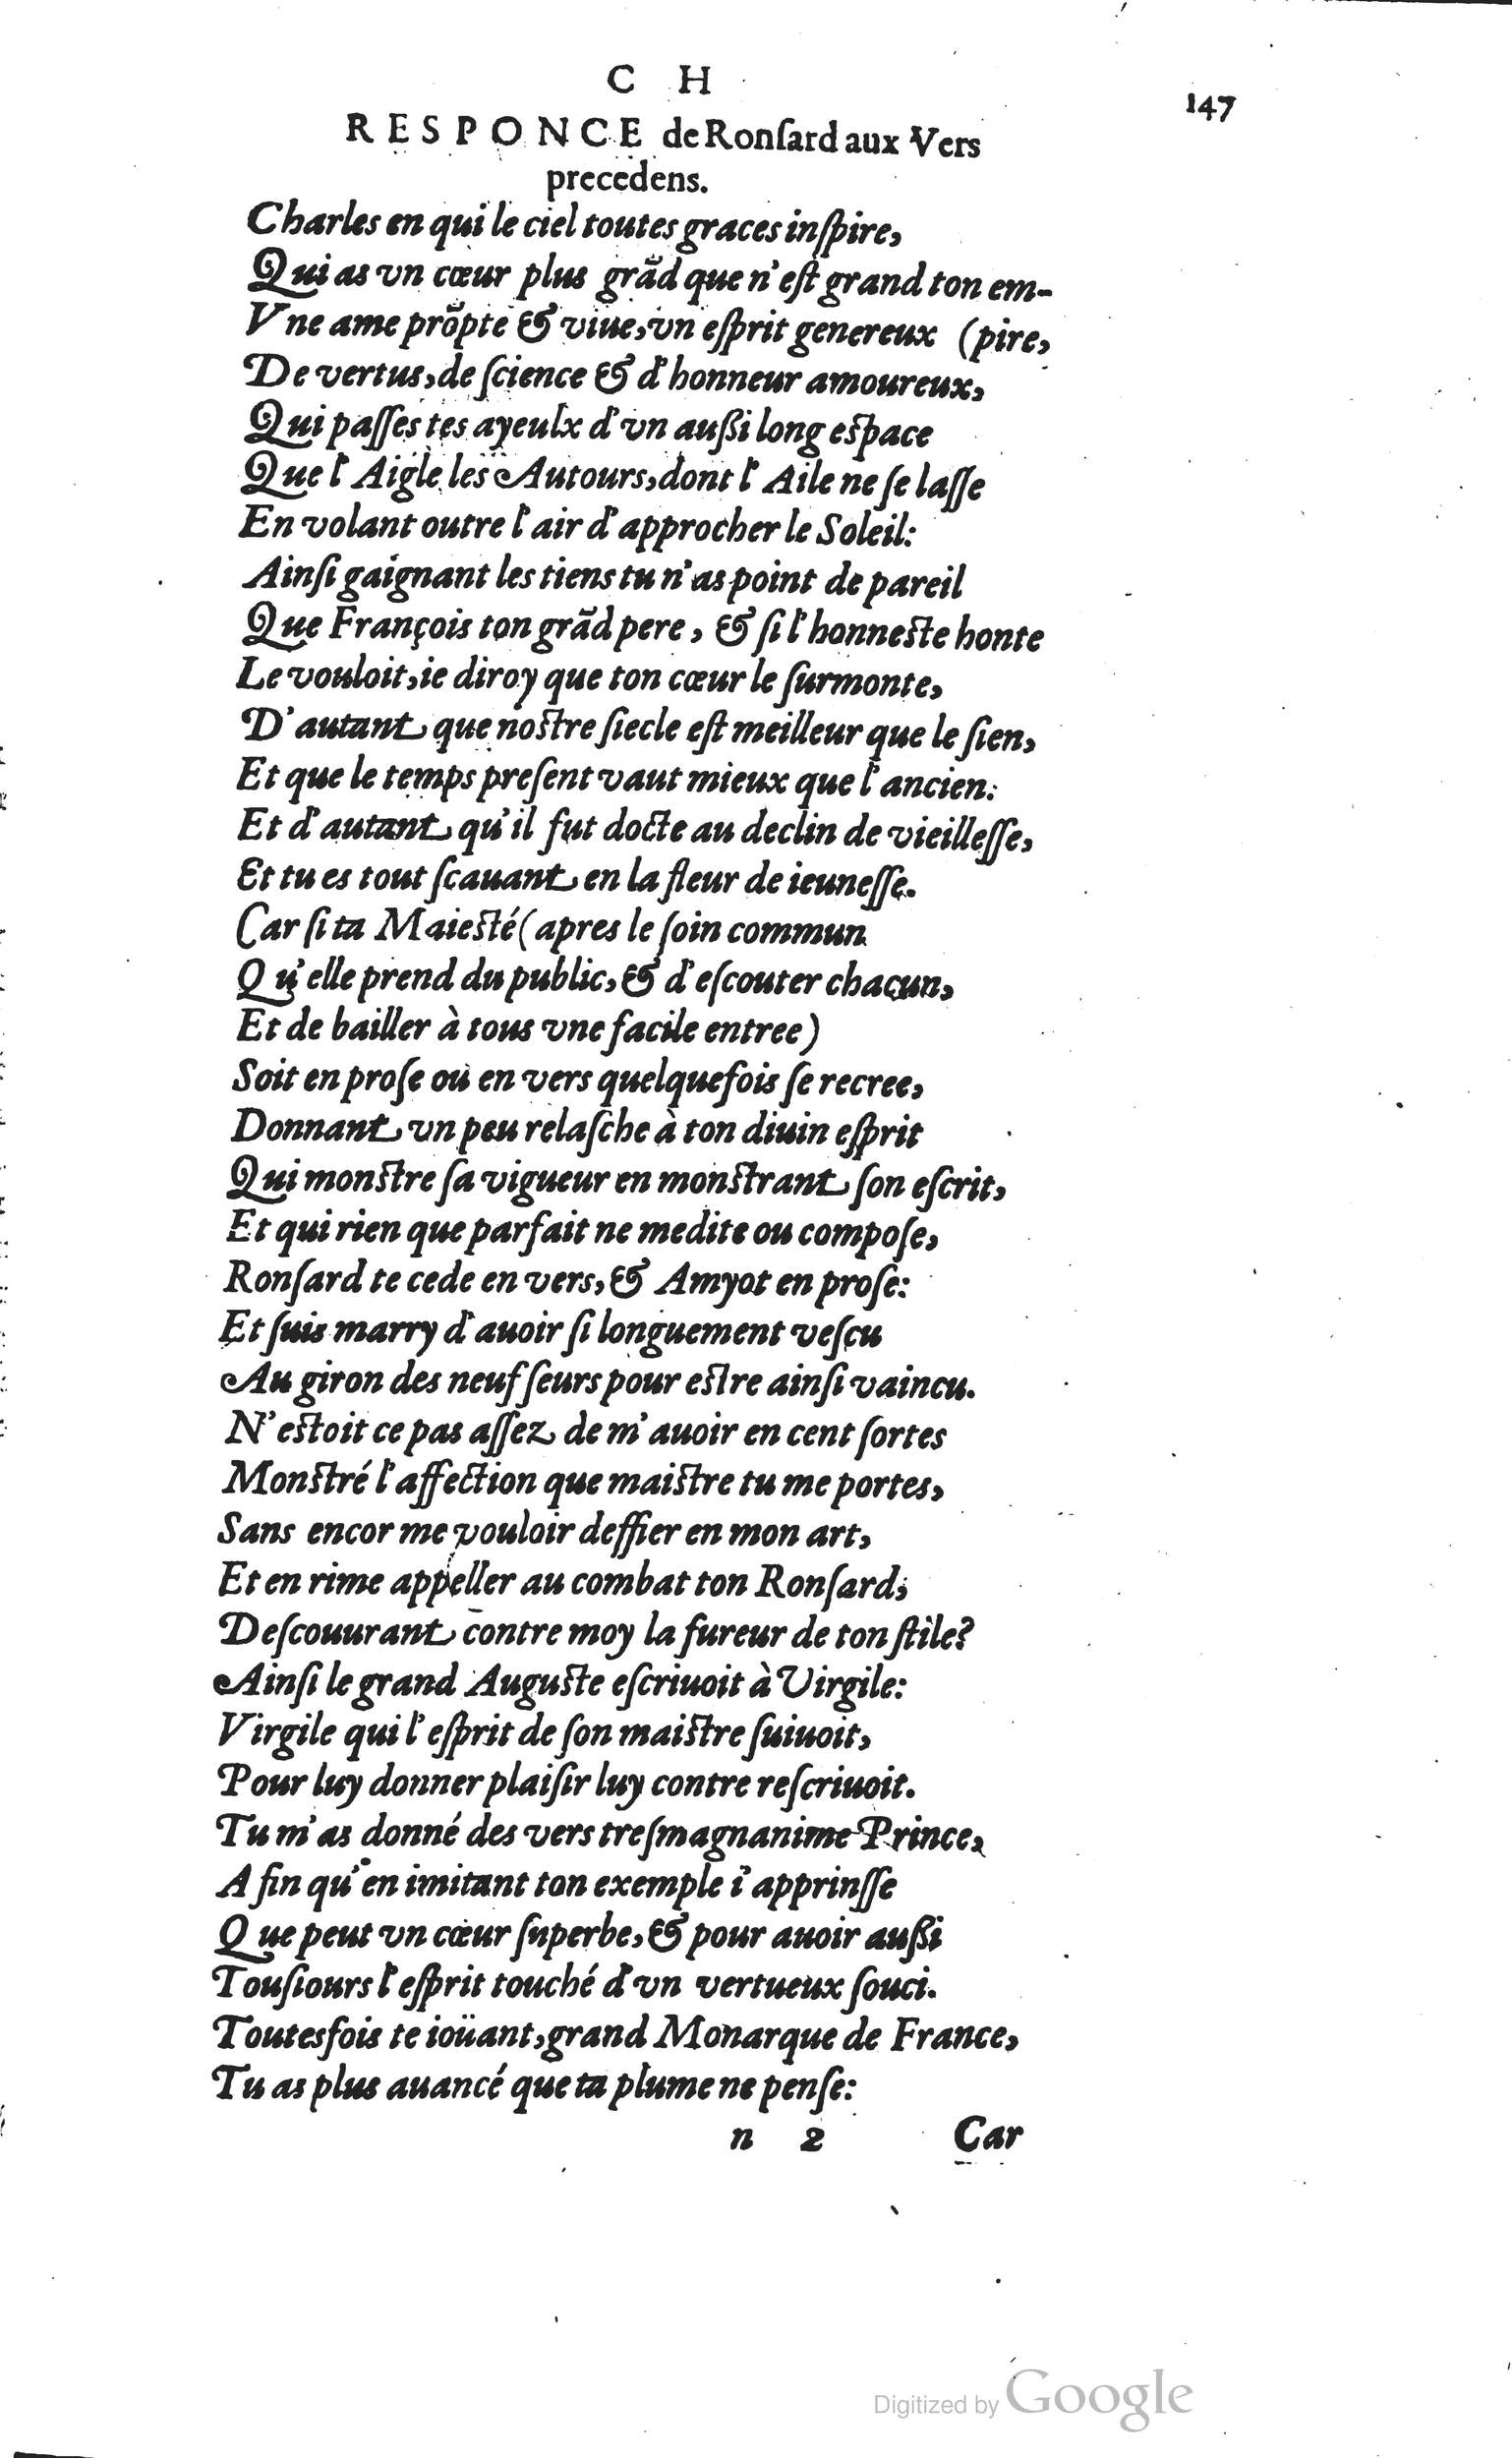 C H
147
RESPONCE de Ronſard aux Vers
precedens.
Charles en qui le ciel toutes graces inſpire,
Qui as vn cœur plus grãd que n'eſt grand ton em-
Vne ame prõpte & viue, vn eſprit genereux (pire,
De vertus, de ſcience & d'honneur amoureux,
Qui paſſes tes ayeulx d'vn außi long eſpace
Que l'Aigle les Autours, dont l'Aile ne ſe laſſe
En volant outre l'air d'approcher le Soleil:
Ainſi gaignant les tiens tu n'as point de pareil
Que François ton grãd pere, & ſi l'honneſte honte
Le vouloit, ie diroy que ton cœur le ſurmonte,
D'autant que noſtre ſiecle eſt meilleur que le ſien,
Et que le temps preſent vaut mieux que l'ancien:
Et d'autant qu'il fut docte au declin de vieilleſſe,
Et tu es tout ſcauant en la fleur de ieuneſſe.
Car ſi ta Maieſté (apres le ſoin commun
Qu'elle prend du public, & d'eſcouter chacun,
Et de bailler à tous vne facile entree)
Soit en proſe ou en vers quelquefois ſe recree,
Donnant vn peu relaſche à ton diuin eſprit
Qui monſtre ſa vigueur en monſtrant ſon eſcrit,
Et qui rien que parfait ne medite ou compoſe,
Ronſard te cede en vers, & Amyot en proſe:
Et ſuis marry d'auoir ſi longuement veſcu
Au giron des neuf ſeurs pour eſtre ainſi vaincu.
N'eſtoit ce pas aſſez de m'auoir en cent ſortes
Monſtré l'affection que maiſtre tu me portes,
Sans encor me vouloir deffier en mon art,
Et en rime appeller au combat ton Ronſard,
Deſcouurant contre moy la fureur de ton ſtile?
Ainſi le grand Auguſte eſcriuoit à Virgile:
Virgile qui l'eſprit de ſon maiſtre ſuiuoit,
Pour luy donner plaiſir luy contre reſcriuoit.
Tu m'as donné des vers treſmagnanime Prince,
A fin qu'en imitant ton exemple i'apprinſſe
Que peut vn cœur ſuperbe, & pour auoir außi
Touſiours l'eſprit touché d'vn vertueux ſouci.
Toutesfois te ioüant, grand Monarque de France,
Tu as plus auancé que ta plume ne penſe:
n 2 Car
Digitized by Google